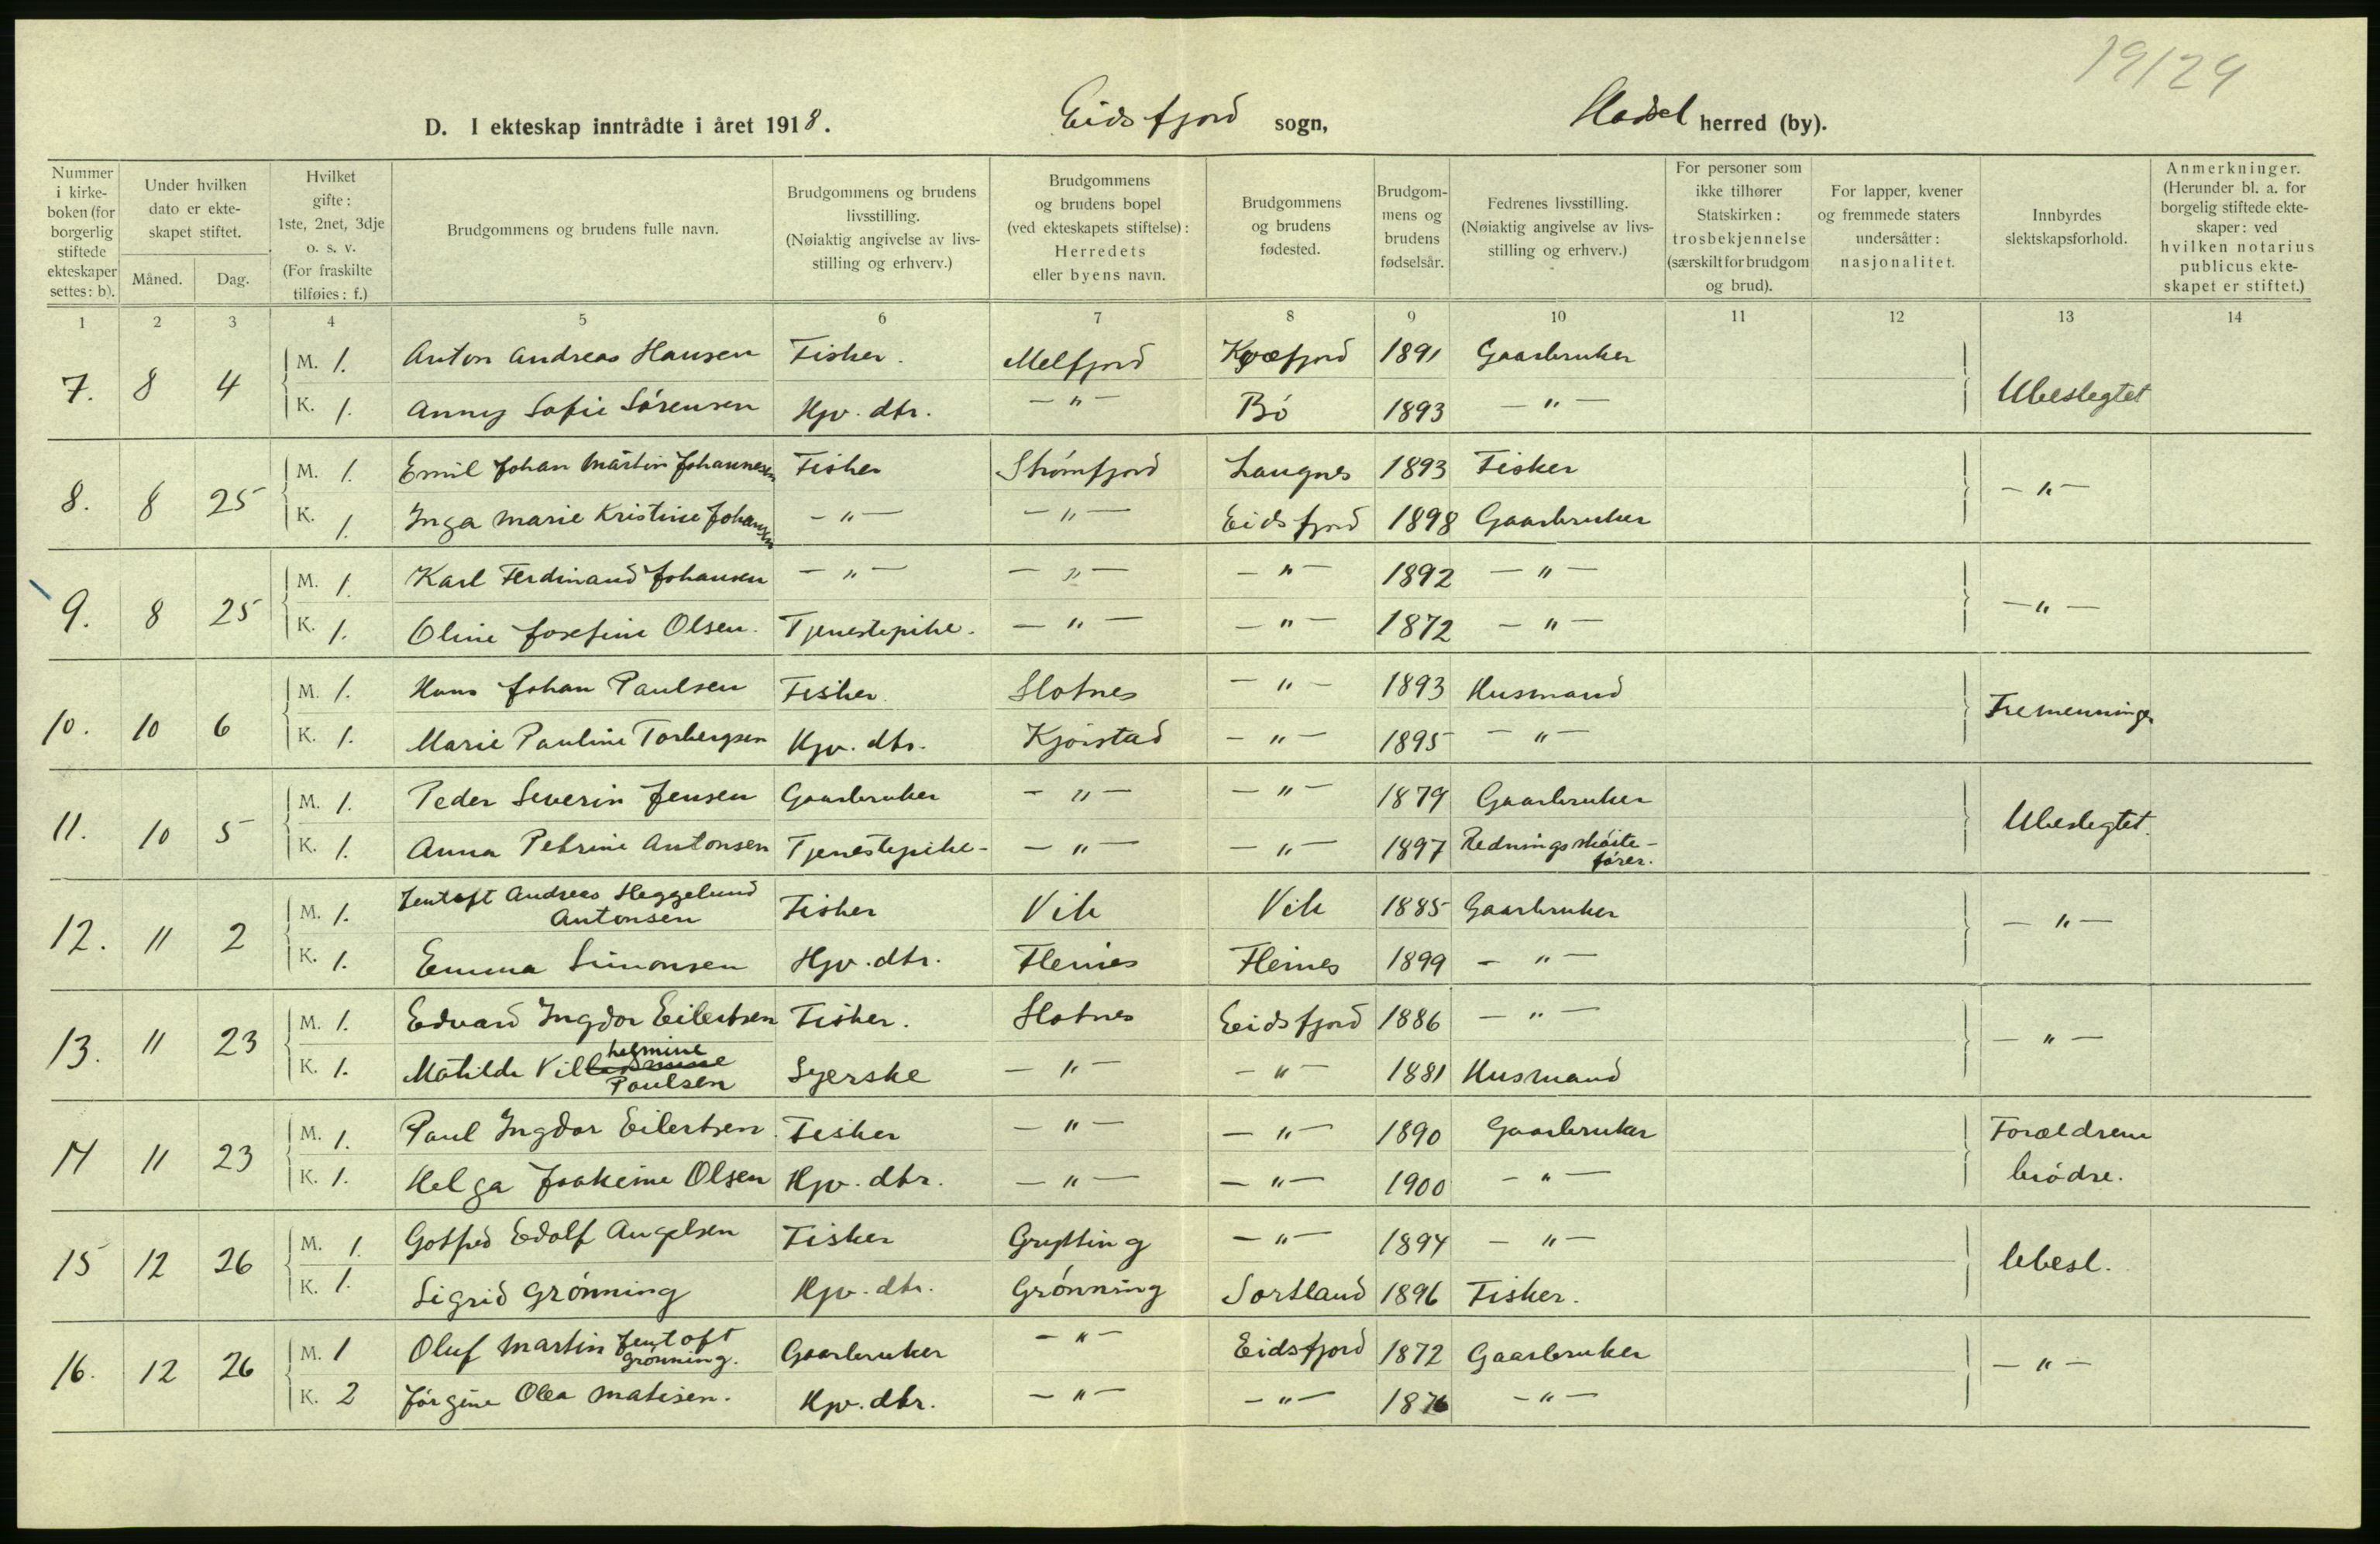 19/29
D. I ekteskap inntrådte i året 1918. Eidsfjord sogn, Hadsel herred (by).
Nummer i kirke-boken (for borgerlig stiftede ekteskaper settes: b). | Under hvilken dato er ekte-skapet stiftet. Måned. Dag. | Hvilket gifte: 1ste, 2net, 3dje o. s. v. (For fraskilte tilføies: f.) | Brudgommens og brudens fulle navn. | Brudgommens og brudens livsstilling. (Nøiaktig angivelse av livs-stilling og erhverv.) | Brudgommens og brudens bopel (ved ekteskapets stiftelse): Herredets eller byens navn. | Brudgommens og brudens fødested. | Brudgom-mens og brudens fødselsår. | Fedrenes livsstilling. (Nøiaktig angivelse av livs-stilling og erhverv.) | For personer som ikke tilhører Statskirken: trosbekjennelse (særskilt for brudgom og brud). | For lapper, kvener og fremmede staters undersåtter: nasjonalitet. | Innbyrdes slektskapsforhold. | Anmerkninger. (Herunder bl. a. for borgelig stiftede ekte-skaper: ved hvilken notarius publicus ekte-skapet er stiftet.)
1 2 3 4 5 6 7 8 9 10 11 12 13 14
7. 8 4 M. 1. Anton Andreas Hansen Fisker. Melfjord Kvæfjord 1891 Gaarbruker Ubeslegtet
K. 1. Anny Sofie Sörensen Hjv. dtr. — " — Bö 1893 — " —
8. 8 25 M. 1. Emil Johan Martin Johannesen Fisker Strömfjord Langnes 1893 Fisker — " —
K. 1. Inga Marie Kristine Johansen — " — — " — Eidsfjord 1898 Gaarbruker
9. 8 25 M. 1. Karl Ferdinand Johansen — " — — " — — " — 1892 — " — — " —
K. 1. Oline Josefine Olsen. Tjenestepike. — " — — " — 1872 — " —
10. 10 6 M. 1. Hans Johan Paulsen Fisker. Slotnes — " — 1893 Husmand Tremenninger
K. 1. Marie Pauline Torbergsen Hjv. dtr. Kjörstad — " — 1895 — " —
11. 10 5 M. 1. Peder Severin Jensen Gaarbruker — " — — " — 1879 Gaarbruker Ubeslegtet.
K. 1. Anna Petrine Antonsen Tjenestepike — " — — " — 1897 Redningssköite-förer.
12. 11 2 M. 1. Jentoft Andreas Heggelund Antonsen Fisker Vik Vik 1885 Gaarbruker — " —
K. 1. Emma Simonsen Hjv. dtr. Fleines Fleines 1899 — " —
13. 11 23 M. 1. Edvard Ingdor Eilertsen Fisker. Slotnes Eidsfjord 1886 — " — — " —
K. 1. Matilde Vilhelmine Paulsen Syerske — " — — " — 1881 Husmand
14 11 23 M. 1. Paul Ingdor Eilertsen Fisker — " — — " — 1890 Gaarbruker Forældrene brödre.
K. 1. Helga Joakime Olsen Hjv. dtr. — " — — " — 1900 — " —
15 12 26 M. 1. Gotfred Edolf Angelsen Fisker Grytting — " — 1894 — " — Ubesl.
K. 1. Sigrid Grönning Hjv. dtr. Grönning Sortland 1896 Fisker.
16. 12 26 M. 1 Oluf Martin Jentoft Grönning. Gaarbruker — " — Eidsfjord 1872 Gaarbruker — " —
K. 2 Jörgine Olea Matisen. Hjv. dtr. — " — — " — 1876 — " —